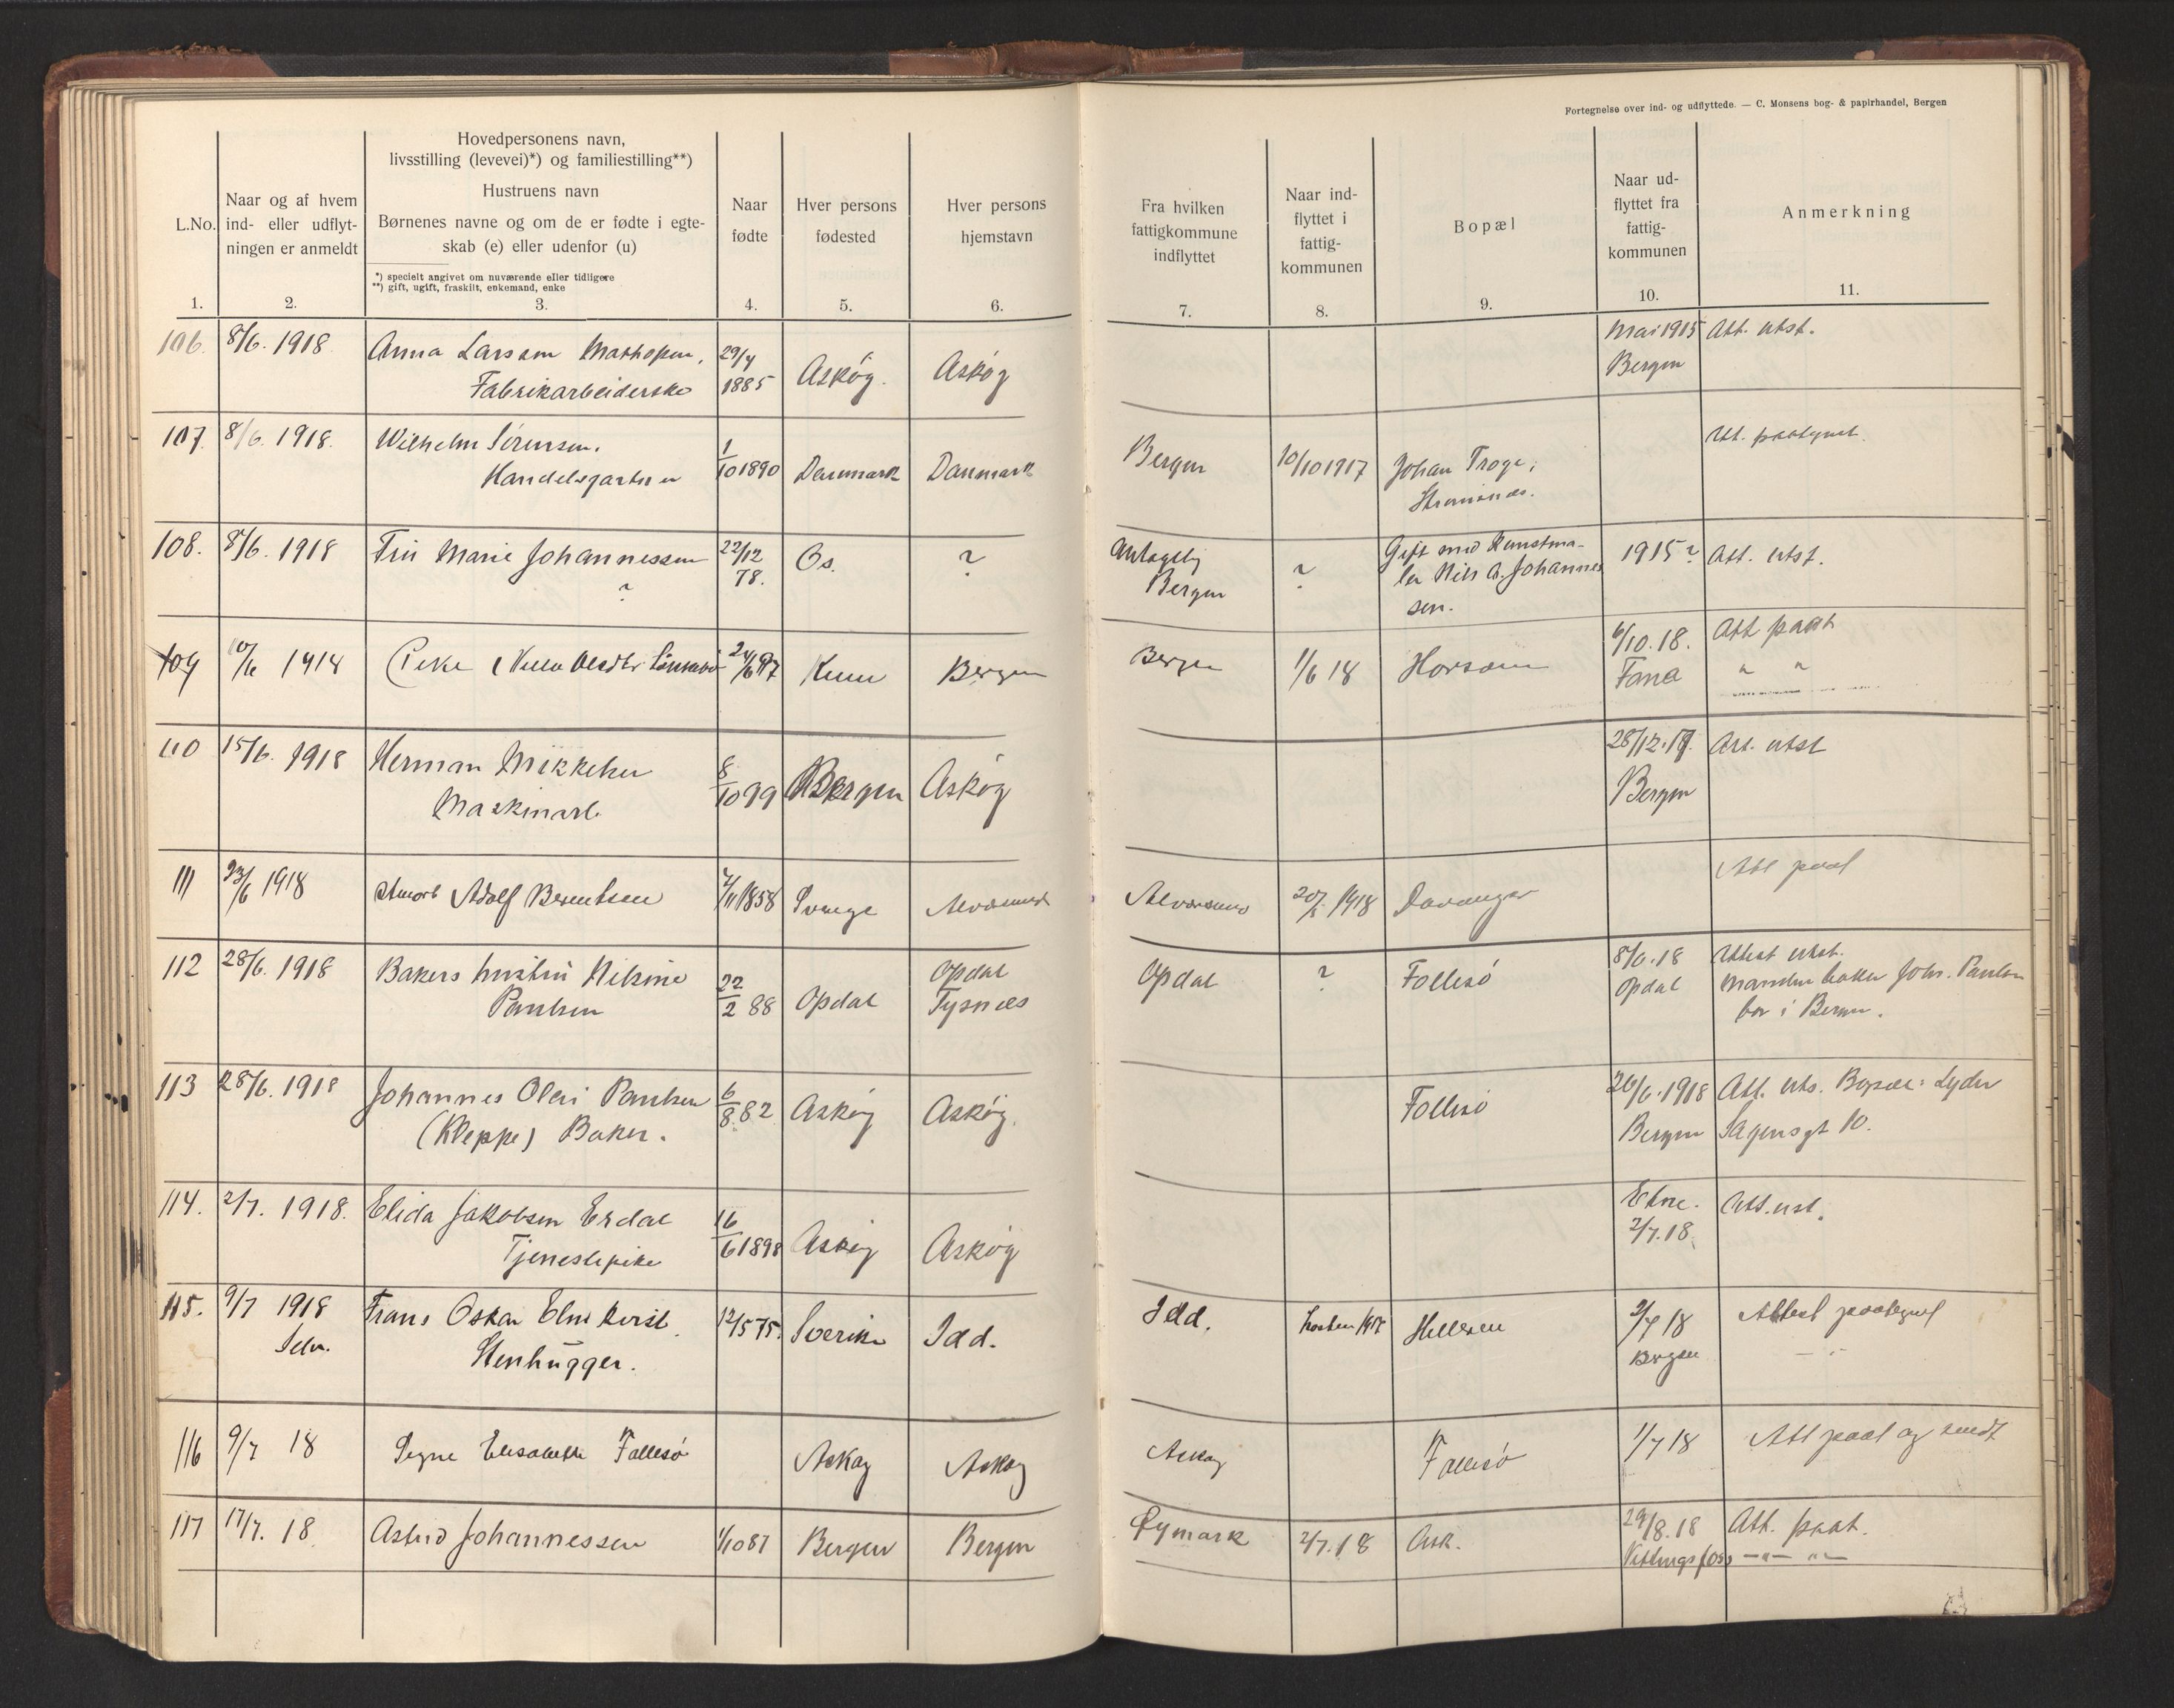 Fortegnelse over ind- og udflyttede. — C. Monsens bog- & papirhandel, Bergen
L.No.
Naar og af hvem
ind- eller udflyt-
ningen er anmeldt
Hovedpersonens navn,
livsstilling (levevei)*) og familiestilling**)
Hustruens navn
Børnenes navne og om de er fødte i egte-
skab (e) eller udenfor (u)
*) specielt angivet om nuværende eller tidligere
**) gift, ugift, fraskilt, enkemand, enke
Naar
fødte
Hver persons
fødested
Hver persons
hjemstavn
Fra hvilken
fattigkommune
indflyttet
Naar ind-
flyttet i
fattig-
kommunen
Bopæl
Naar ud-
flyttet fra
fattig-
kommunen
Anmerkning
1. 2. 3. 4. 5. 6. 7. 8. 9. 10. 11.
106. 8/6. 1918 Anna Larsen Mathopen, 29/4 Mai 1915 Att. utst.
Fabrikarbeiderske 1885 Askøy. Askøy Bergen
107. 8/6. 1918. Wilhelm Sörensen. 1 Att. paategnet
Handelsgartner 10 1890 Danmark Danmark Bergen 10/10 1917 Johan Troge,
108. 8/6. 1918 Fru Marie Johannessen 22/12 Os. ? Antagelig ? Gift med Kunstma- 1915? Att. utst.
? 78. Bergen ler Nils A. Johannes
sen.
109 10/6 1918 24/6 97 Bergen Bergen 1/6 18 Horsøen 6/10.18. Att paat
Fana " "
110 15/6. 1918 Herman Mikkelsen 8 28/12. Att. utst
Maskinarb. 10 99 Bergen Askøy Bergen
111 23/6 1918 Adolf Berentsen 4/11 1858 Alversund 20/ 1918 Davanger Att paat
112 28/6. 1918 Bakers hustru Nilsine 22 Opdal Opdal ? Follesö 8/6.18 Attest utst.
Paulsen 2 88 Opdal Tysnæs Opdal Manden baker Johs. Paulsen
bor i Bergen.
113 28/6. 1918 Johannes Olai Paulsen 6 Follesö 26/6. 1918 Att. uts. Bopæl: Lyder
(Kleppe) Baker. 8. 82 Askøy Askøy. Bergen Sagensgt 10.
114. 2/7. 1918. Elida Jakobsen Erdal 16 Etne. Att. ust.
Tjenestepike 6 1898 Askøy Askøy 2/7.18.
115. 9/7 1918 Frans Oskar 12/5 75. Sverike Idd. Idd. Helleren 2/7 18 Attest paategnet
Selv. Stenhugger. Bergen — " —
116 9/7 18 Signe Elisabeth Follesö Askøy Askøy Askøy Follesö 1/7 18 Att paat og sendt
117 17/7. 18 Astrid Johannessen 1/10 87 Bergen Bergen 2/7.18 Ask. 29/8.18 Att. paat.
Vittingsfoss — " — " —